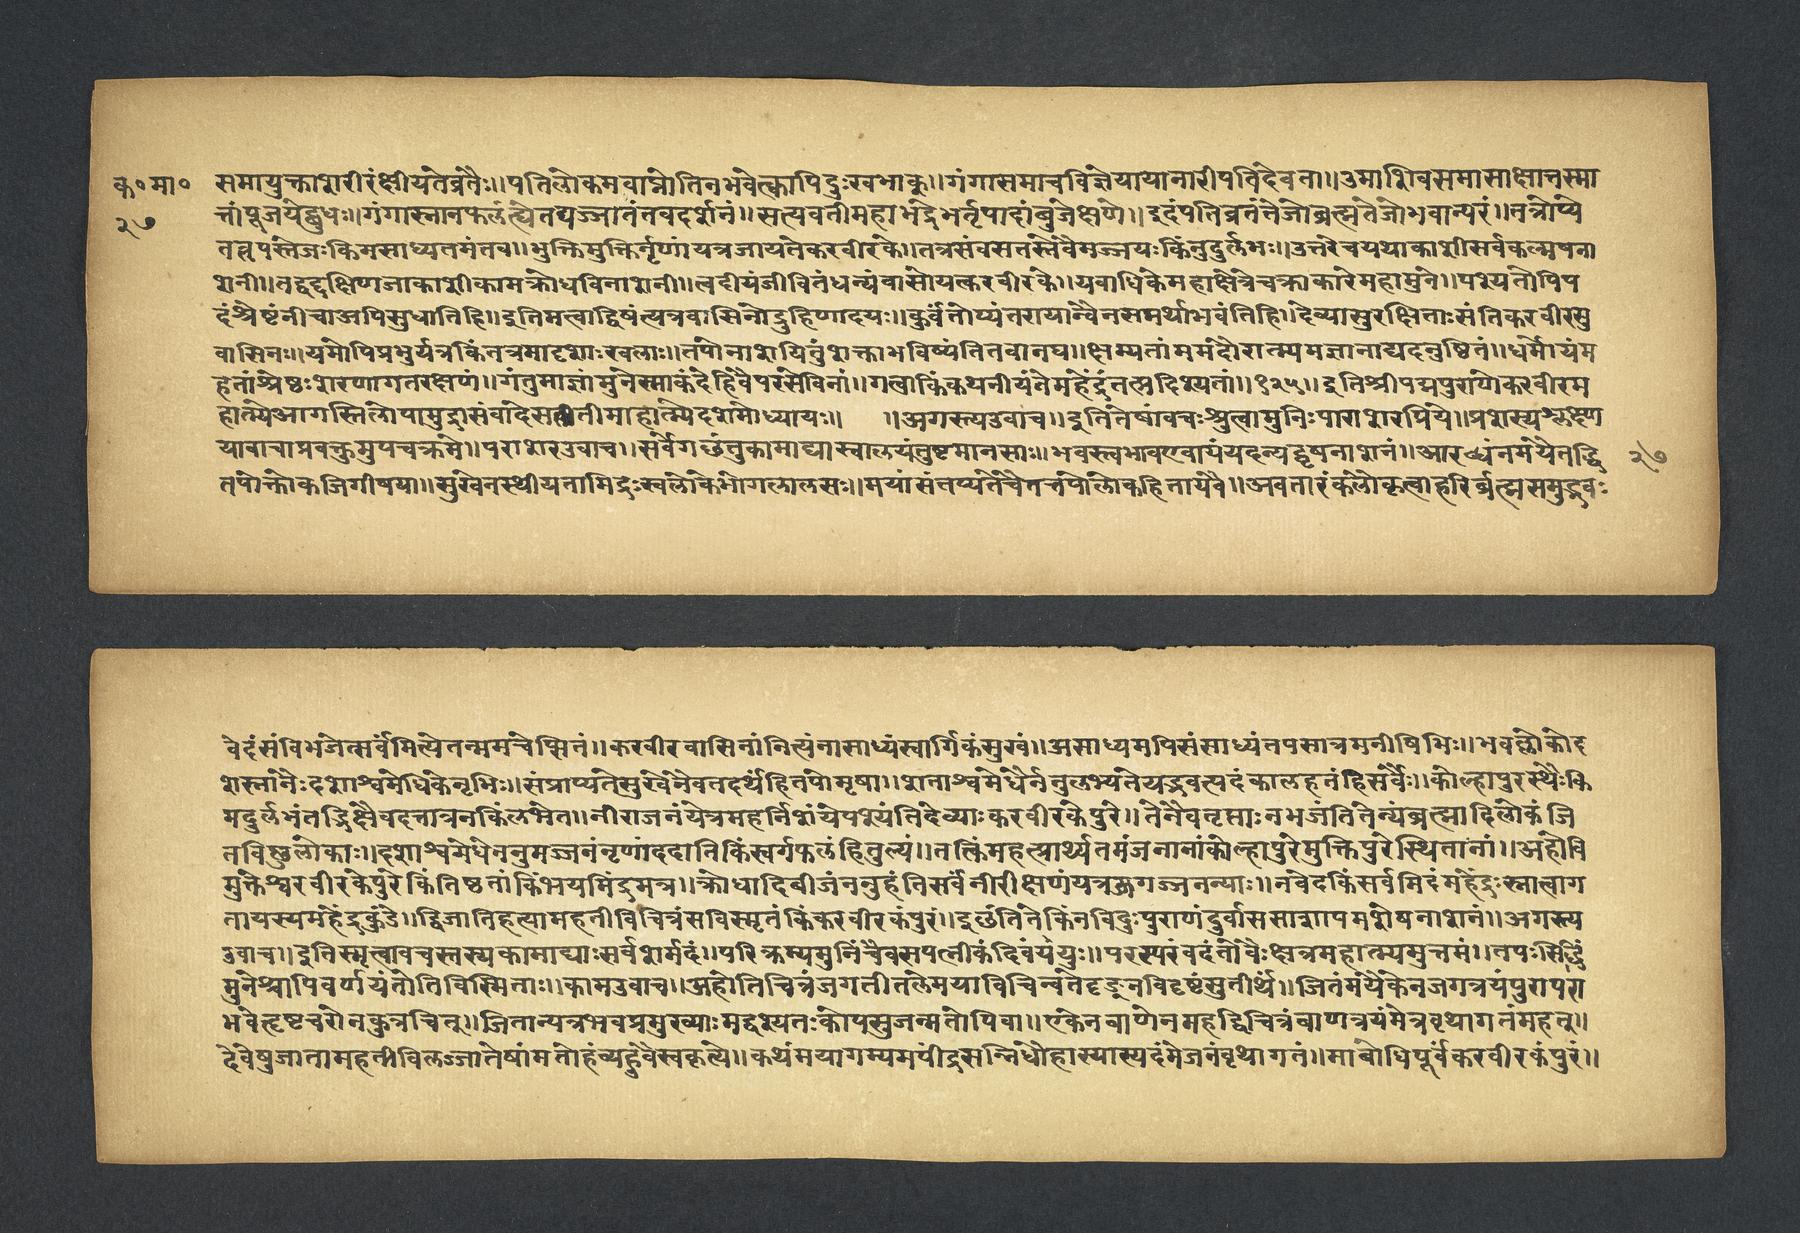 क॰मा॰ समायुक्ताशरीरंक्षीयतेव्रतैः॥पतिलोकमवाप्नोतिनभवेत्क्वापिदुःखभाक्॥गंगासमाचविज्ञेयायानारीपतिदेवता॥उमाशिवसमासाक्षात्तस्मा
२७ त्तांपूजयेद्बुधः॥गंगास्नानफलंत्येतद्यज्जातंतवदर्शनं॥सत्यवतीमहाभद्रेभर्तृपादांबुजेक्षणे॥इदंपतिव्रतंतेजोब्रह्मतेजोभवान्परं॥तत्रोप्ये
तत्तपस्तेजःकिमसाध्यतमंतव॥भुक्तिमुक्तिर्नृणांयत्रजायतेकरवीरके॥तत्रसंवसतस्तेवैमज्जयःकिंनुदुर्लभः॥उत्तरेचयथाकाशीसर्वकल्मषना
शनी॥तद्वद्दक्षिणजाकाशीकामक्रोधविनाशनी॥त्वदीयंजीवितंधन्यंवासोयत्करवीरके॥यवाधिकेमहाक्षेत्रेचक्राकारेमहामुने॥पश्यतोपिप
दंश्रेष्टंनीचाअपिसुधातिहि॥इतिमत्वाद्विषंत्यत्रवासिनोद्रुहिणादयः॥कुर्वंतोप्यंतरायान्वैनसमर्थाभवंतिहि॥देव्यासुरक्षिताःसंतिकरवीरसु
वासिनः॥यमोपिप्रभुर्यत्रकिंनत्रमादृशाःखलाः॥तपोनाशयितुंशक्ताभविष्यंतितवानघ॥क्षम्यतांममदौरात्म्यमज्ञानाद्यदनुष्ठितं॥धर्मोयंम
हतांश्रेष्ठःशरणागतरक्षणं॥गंतुमाज्ञांमुनेस्माकंदेहिवैपरसेविनां॥गत्वाकिंकथनीयंतेमहेंद्रंतत्प्रदिश्यतां॥१२५॥इतिश्रीपद्मपुराणेकरवीरम
हात्म्येआगस्तिलोपामुद्रासंवादेसत्तीतीमाहात्म्येदशमोध्यायः॥ ॥अगस्त्यउवाच॥इतितेषांवचःश्रुत्वामुनिःपाराशरप्रिये॥प्रशस्यश्लक्ष्ण
यावाचाप्रवक्तुमुपचक्रमे॥पराशरउवाच॥सर्वेगछंतुकामाद्यास्वालयंतुष्टमानसाः॥भवत्स्वभावएवायंयदन्यद्दूषनाशनं॥आरब्धंनमयैतद्धि २७
तपोक्तोकजिगीषया॥सुखेनस्थीयतामिंद्रःस्वर्लोकेभोगलालसः॥मयासंतप्यतेचैतत्तपोलोकहितायवै॥अवतारंकलौकृत्वाहरिर्ब्रह्मसमुद्भवः
वेदंसंविभजेत्सर्वमित्येतन्ममचेप्सितं॥करवीरवासिनांनित्यंनासाध्यंस्वार्गिकंसुखं॥असाध्यमपिसंसाध्यंतपसात्रमनीषिभिः॥भवल्लोकोद
शस्नानैःदशाश्वमेधिकेनृभिः॥संप्राप्यतेसुखेनैवतदर्थंहितपोमृषा॥शताश्वमेधैर्ननुलभ्यतेयद्भवत्पदंकालहतंहिसर्वैः॥कोल्हापुरस्थैःकि
मदुर्लभंतद्भिक्षैवदत्तात्रनकिंलभेत॥नीराजनंयेत्रमहर्निशंयेपश्यंतिदेव्याःकरवीरकेपुरे॥तेनैवतृप्ताःनभजंतितेन्यंब्रह्मादिलोकंजि
तविष्णुलोकाः॥दशाश्वमेधेननुमज्जनंनृणांददातिकिंस्वर्गफलंहितुल्यं॥तत्किंमहत्प्रार्थ्यतमंजनानांकोल्हापुरेमुक्तिपुरेस्थितानां॥अहोवि
मुक्तेश्वरवीरकेपुरेकिंतिष्ठतांकिंभयमिंद्रमत्र॥क्रोधादिबीजंननुहंतिसर्वंनीरीक्षणंयत्रजगज्जनन्याः॥नवेदकिंसर्वमिदंमहेंद्रःस्नात्वाग
तायस्यमहेंद्रकुंडे॥द्विजातिहत्यामहतीविचित्रंसविस्मृतंकिंकरवीरकंपुरं॥इछंतितेकिंनविदुःपुराणंदुर्वाससाशापमशेषनाशनं॥अगस्त्य
उवाच॥इतिस्मृत्वावचस्तस्यकामाद्याःसर्वशर्मदं॥परिक्रम्यमुनिंचैवसपत्नीकंदिवंययुः॥परस्परंवदंतोवैःक्षेत्रमहात्म्यमुत्तमं॥तपःसिद्धिं
मुनेश्चापिवर्णयंतोतिविस्मिताः॥कामउवाच॥अहोतिचित्रंजगतीतलेमयाविचिन्वतेदृङ्नविदृष्टंसुतीर्थं॥जितंमयैकेनजगत्रयंपुरापरा
भवेत्दृष्टचरोनकुत्रचित्॥जितान्यत्रभवप्रमुख्याःमद्दृश्यतःकोपसुजन्मतोपिवा॥एकेनबाणेनमहद्विचित्रंबाणत्रयंमेत्रवृथागतंमहत्॥
देवेषुजातामहतीविलज्जातेषांमतोहंव्यहुवैस्वकृत्ये॥कथंमयागम्यमपींद्रसन्निधौहास्यास्पदंमेजनंवृथागतं॥माबोधिपूर्वंकरवीरकंपुरं॥